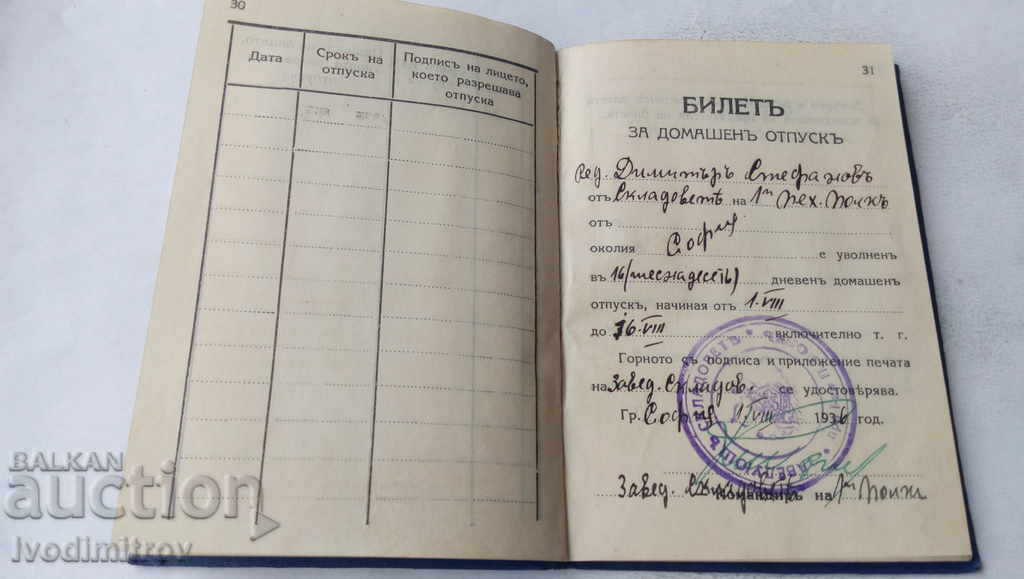 30
Дата
Срокъ на отпуска
Подписъ на лицето, което разрешава отпуска
31
БИЛЕТЪ
ЗА ДОМАШЕНЪ ОТПУСКЪ
ред. Димитъръ Стефановъ
отъ Складоветѣ на 1ти Пех. Полкъ
отъ
околия София е уволненъ
въ 16 (шеснадесеть) дневенъ домашенъ
отпускъ, начиная отъ 1.VIII
до 16.VIII включително т. г.
Горното съ подписа и приложение печата
на Завед. Складов. се удостовѣрява.
Гр. София 1/VIII 1936 год.
Завед. Складоветѣ Командиръ на 1ти Полкъ
ЗАВЕДУЮЩЪ СКЛАДОВЕТѢ
BALKAN
auction
Ivodimitrov